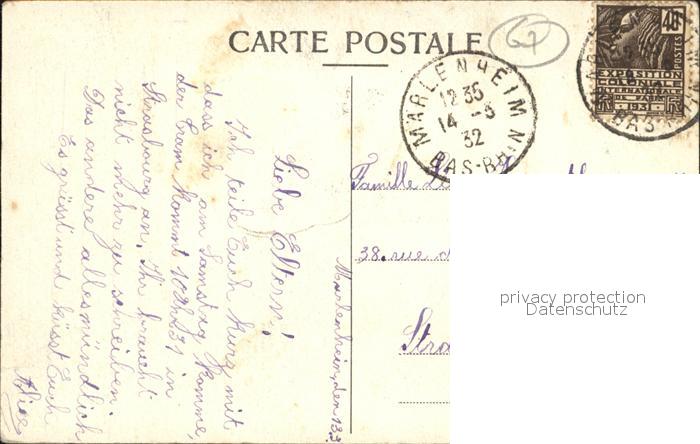 CARTE POSTALE
67
MARLENHEIM
12 35
14 -3
32
BAS-RHIN
40c
POSTES
EXPOSITION
COLONIALE
INTERNATIONALE
PARIS
1931
Liebe Eltern!
Ich teile Euch kurz mit
dass ich am Samstag komme,
der Tram kommt 10 Uhr 31 in
Strasbourg an. Ihr braucht
nicht mehr zu schreiben.
Das andere alles mündlich
Es grüsst und küsst Euch
Alice
Marlenheim, den 13.3
Famille
38. rue
Stra
privacy protection
Datenschutz